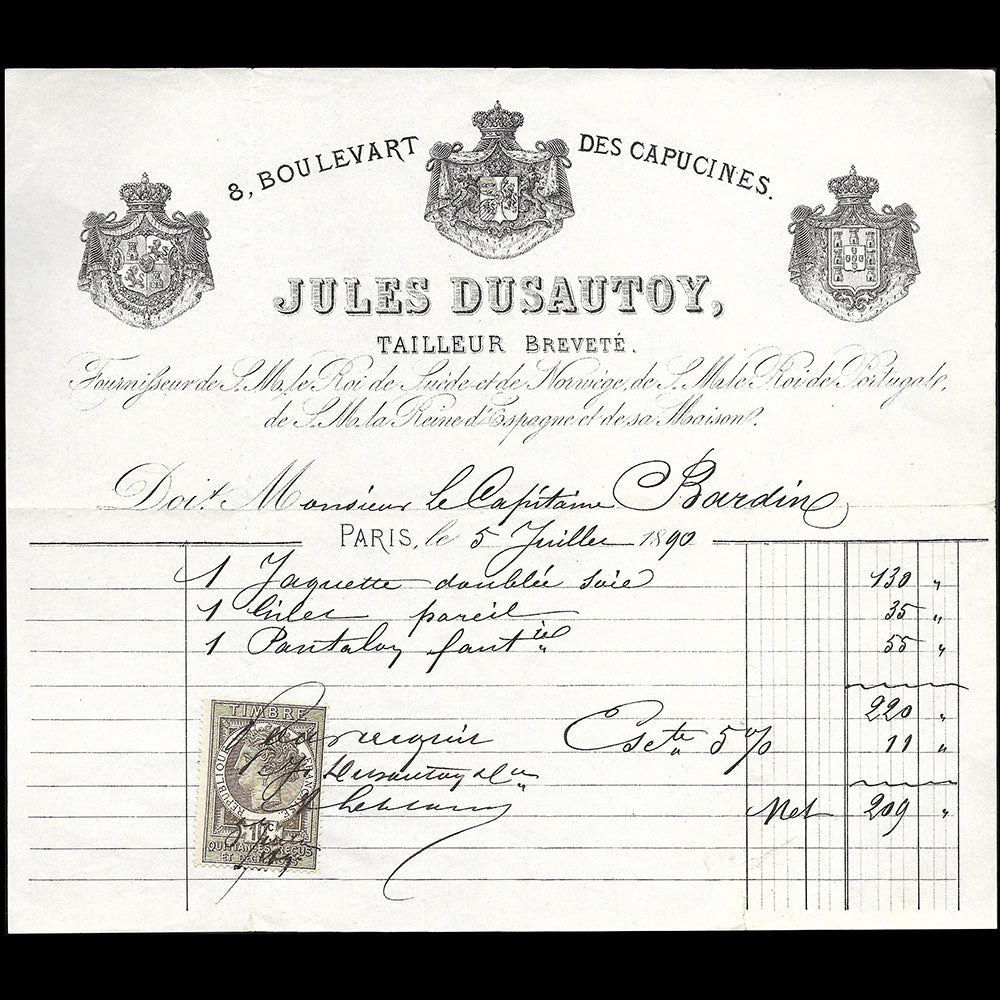 8, BOULEVART DES CAPUCINES.
JULES DUSAUTOY,
TAILLEUR BREVETÉ.
Fournisseur de S. M. le Roi de Suède et de Norwège, de S. M. le Roi de Portugal,
de S. M. la Reine d'Espagne et de sa Maison.
Doit Monsieur Le Capitaine Bardin
PARIS, le 5 Juillet 1890
1 Jaquette doublée soie 130 "
1 Gilet pareil 35 "
1 Pantalon fantie 55 "
220 "
Escte 5 % 11 "
Net 209 "
Pour acquit
Dusautoy
TIMBRE
REPUBLIQUE FRANÇAISE
10c
QUITTANCES REÇUS
ET DECHARGES